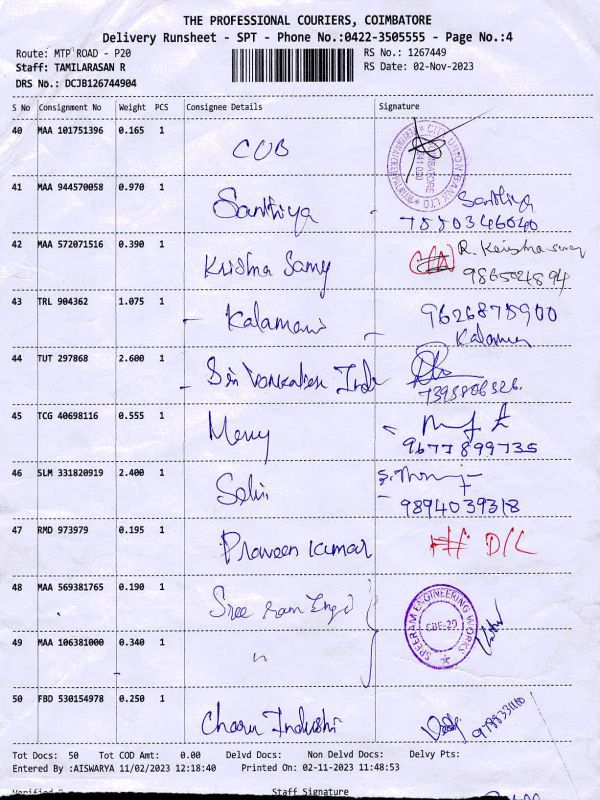 THE PROFESSIONAL COURIERS, COIMBATORE
Delivery Runsheet - SPT - Phone No.:0422-3505555 - Page No.:4
Route: MTP ROAD - P20 RS No.: 1267449
Staff: TAMILARASAN R RS Date: 02-Nov-2023
DRS No.: DCJB126744904
S No Consignment No Weight PCS Consignee Details Signature
40 MAA 101751396 0.165 1 CUB CITY UNION BANK LTD COIMBATORE
41 MAA 944570058 0.970 1 Santhiya Santhiya
7550346040
42 MAA 572071516 0.390 1 Krishna Samy
43 TRL 904362 1.075 1 Kalamani 9626875900
44 TUT 297868 2.600 1
7395806326
45 TCG 40698116 0.555 1 Mercy
9677899735
46 SLM 331820919 2.400 1 Selvi
9894039318
47 RMD 973979 0.195 1 Praveen Kumar D/L
48 MAA 569381765 0.190 1 Sree ram Engi SREERAM ENGINEERING WORKS CBE-29
49 MAA 106381000 0.340 1 "
50 FBD 530154978 0.250 1
Tot Docs: 50 Tot COD Amt: 0.00 Delvd Docs: Non Delvd Docs: Delvy Pts:
Entered By :AISWARYA 11/02/2023 12:18:40 Printed On: 02-11-2023 11:48:53
Staff Signature